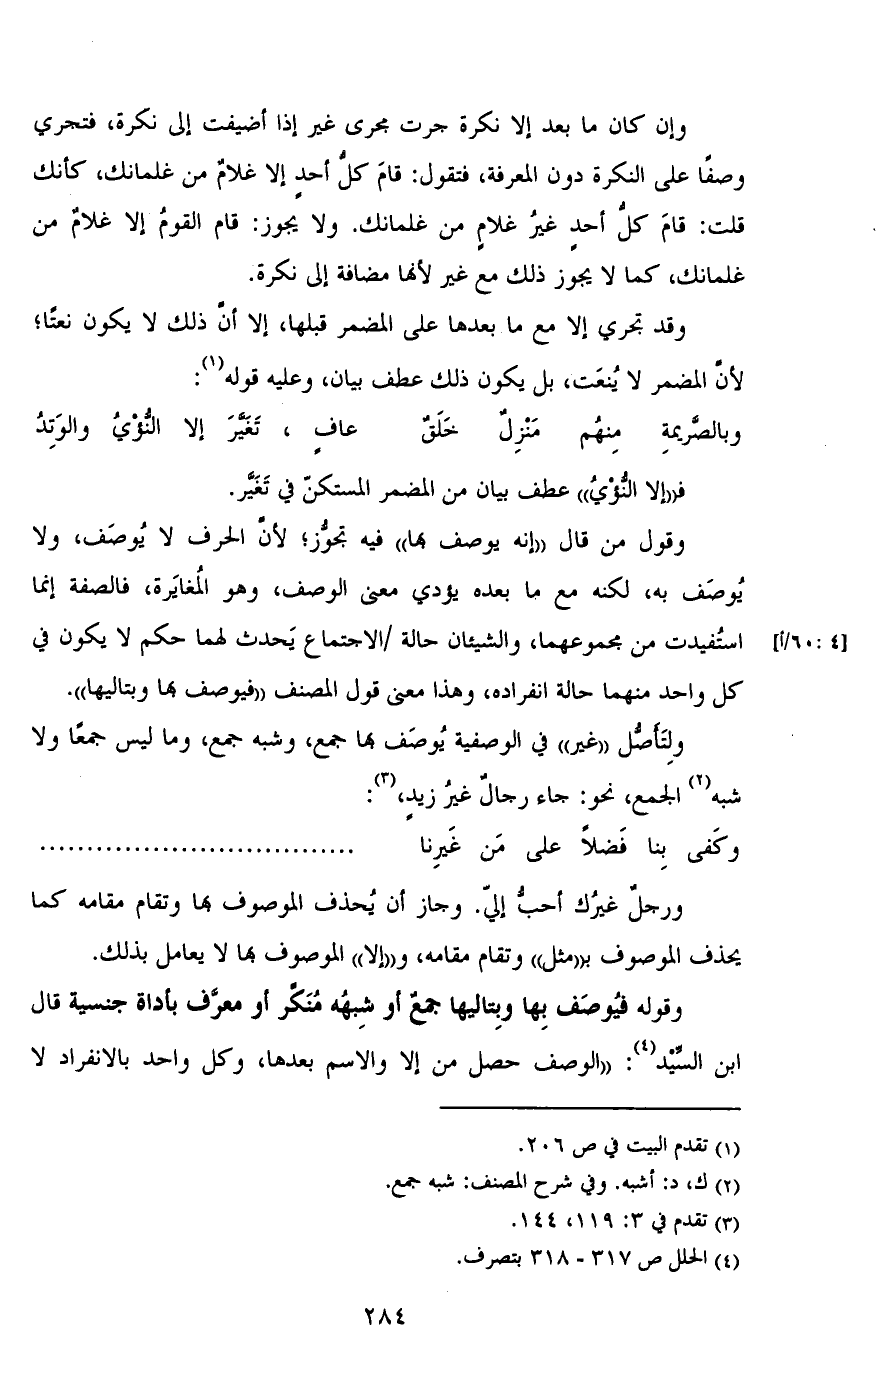 وإن كان ما بعد إلا نكرة جرت مجرى غير إذا أضيفت إلى نكرة، فتجري
وصفًا على النكرة دون المعرفة، فتقول: قامَ كلُّ أحدٍ إلا غلامٌ من غلمانك، كأنك
قلت: قامَ كلُّ أحدٍ غيرُ غلامٍ من غلمانك. ولا يجوز: قام القومُ إلا غلامٌ من
غلمانك، كما لا يجوز ذلك مع غير لأنها مضافة إلى نكرة.
وقد تجري إلا مع ما بعدها على المضمر قبلها، إلا أنَّ ذلك لا يكون نعتًا؛
لأنَّ المضمر لا يُنعَت، بل يكون ذلك عطف بيان، وعليه قوله(١):
وبالصَّريمةِ مِنهُم مَنْزِلٌ خَلَقٌ عافٍ ، تَغَيَّرَ إلا النُّؤْيُ والوَتِدُ
فـ«إلا النُّؤْيُ» عطف بيان من المضمر المستكنّ في تَغَيَّر.
وقول من قال «إنه يوصف بها» فيه تجوُّز؛ لأنَّ الحرف لا يُوصَف، ولا
يُوصَف به، لكنه مع ما بعده يؤدي معنى الوصف، وهو المُغايَرة، فالصفة إنما
استُفيدت من مجموعهما، والشيئان حالة /الاجتماع يَحدث لهما حكم لا يكون في [٤: ٦٠/أ]
كل واحد منهما حالة انفراده، وهذا معنى قول المصنف «فيوصف بها وبتاليها».
ولِتَأَصُّل «غير» في الوصفية يُوصَف بها جمع، وشبه جمع، وما ليس جمعًا ولا
شبه(٢) الجمع، نحو: جاء رجالٌ غيرُ زيدٍ،(٣):
وكَفى بِنا فَضلاً على مَن غَيرِنا ..................................
ورجلٌ غيرُك أحبُّ إليّ. وجاز أن يُحذف الموصوف بها وتقام مقامه كما
يحذف الموصوف بـ«مثل» وتقام مقامه، و«إلا» الموصوف بها لا يعامل بذلك.
وقوله فيُوصَف بِها وبِتاليها جمعٌ أو شِبهُه مُنَكَّر أو معرَّف بأداة جنسية قال
ابن السِّيْد(٤): «الوصف حصل من إلا والاسم بعدها، وكل واحد بالانفراد لا
(١) تقدم البيت في ص ٢٠٦.
(٢) ك، د: أشبه. وفي شرح المصنف: شبه جمع.
(٣) تقدم في ٣: ١١٩، ١٤٤.
(٤) الحلل ص ٣١٧ - ٣١٨ بتصرف.
٢٨٤